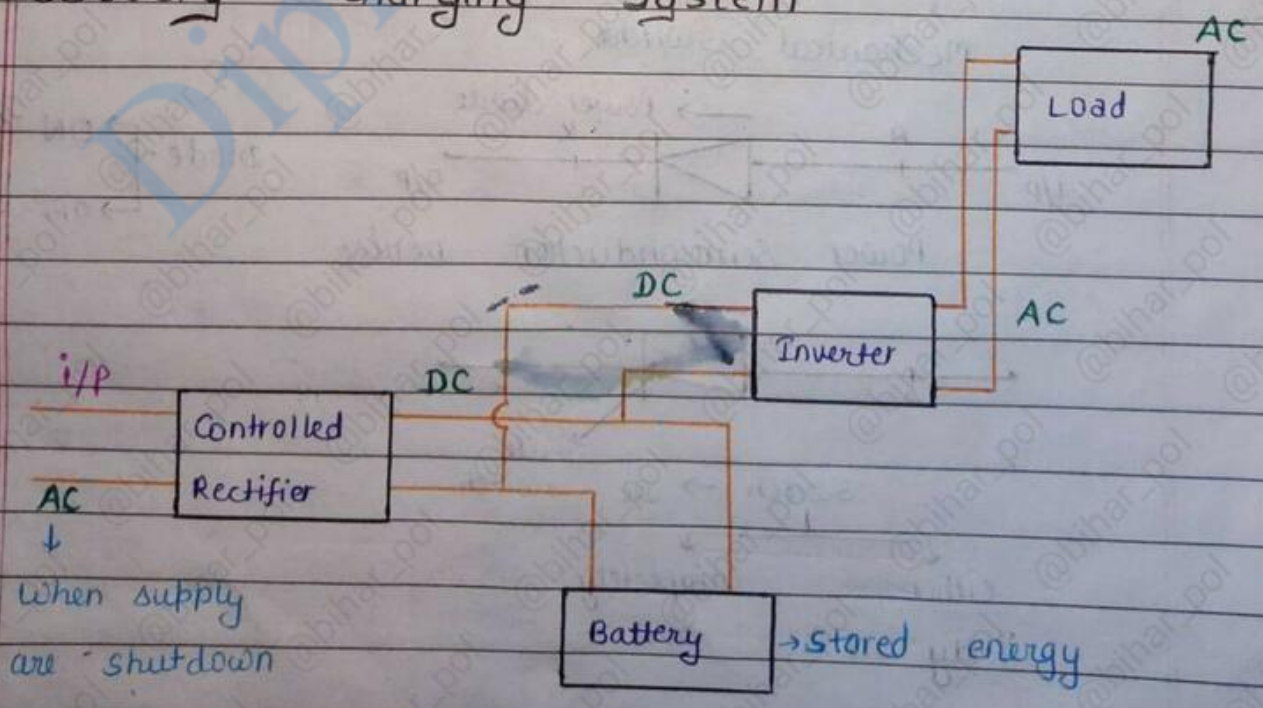 charging system
AC
Load
DC
Inverter
AC
i/p
DC
Controlled
Rectifier
AC
↓
When supply
are shutdown
Battery
→ stored energy
Dip
@bihar_pol